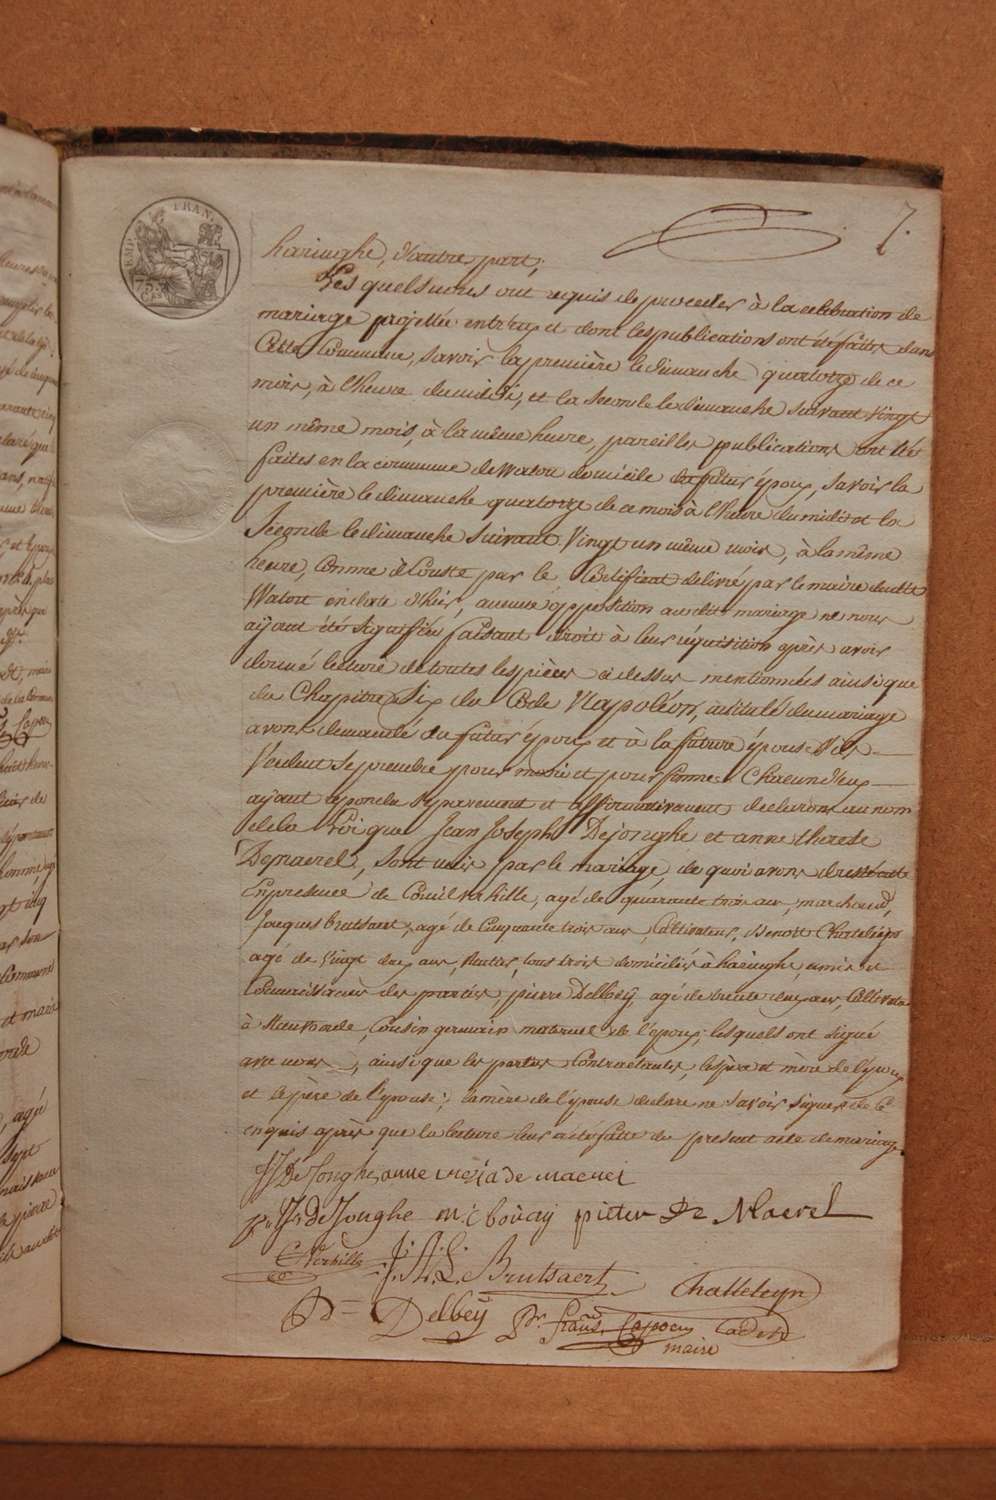 7.
EMP. FRAN.
75 C.
haringhe, d'autre part,
Lesquels nous ont requis de proceder à la celebration de
mariage projettée entr'eux et dont les publications ont été faites dans
Cette Commune, savoir la première le dimanche quatorze de ce
mois, à l'heure du midi, et la seconde le dimanche suivant Vingt
un même mois, à la même heure, pareilles publications ont été
faites en la commune de Watou domicile du futur époux, savoir la
première le dimanche quatorze de ce mois à l'heure du midi et la
Seconde le dimanche suivant Vingt un même mois, à la même
heure, Comme il Conste par le Certificat delivré par le maire dudit
Watou en date d'hier, aucune opposition audit mariage ne nous
aÿant été signifiée faisant droit à leur réquisition après avoir
donné lecture de toutes les pièces ci dessus mentionnées ainsi que
du Chapitre Six du Code Napoléon, intitulé du mariage
avons demandé au futur époux et à la future épouse s'ils
Veulent se prendre pour mari et pour femme Chacun d'eux
aÿant repondu séparement et affirmativement declarons au nom
de la Loi que Jean Joseph Dejonghe et anne therese
Demaerel, sont unis par le mariage, de quoi avons dressé acte
En presence de Corneil Verhille, agé de quarante trois ans, marchand,
Jacques Brutsaert, agé de Cinquante trois ans, Cultivateur, Benoit Chatteleyn
agé de Vingt deux ans, tous trois domiciliés à haringhe, amis et
Connaissances des parties, pierre Delbeÿ, agé de trente deux ans, Cultivateur
à Steenvoorde, Cousin germain maternel de l'époux; lesquels ont signé
avec nous, ainsi que les parties Contractantes, les père et mère de l'époux
et le père de l'épouse; la mère de l'épouse declare ne savoir signer de ce
enquis après que la lecture leur a été faite du present acte de mariage.
J J De Jonghe anne tresia de maerel
J: De Jonghe M: C boúaÿ pieter De Maerel
C Verhille J. A. L. Brutsaert Chatteleyn
P = Delbeÿ Pr. frans. Capoen Cadet
maire